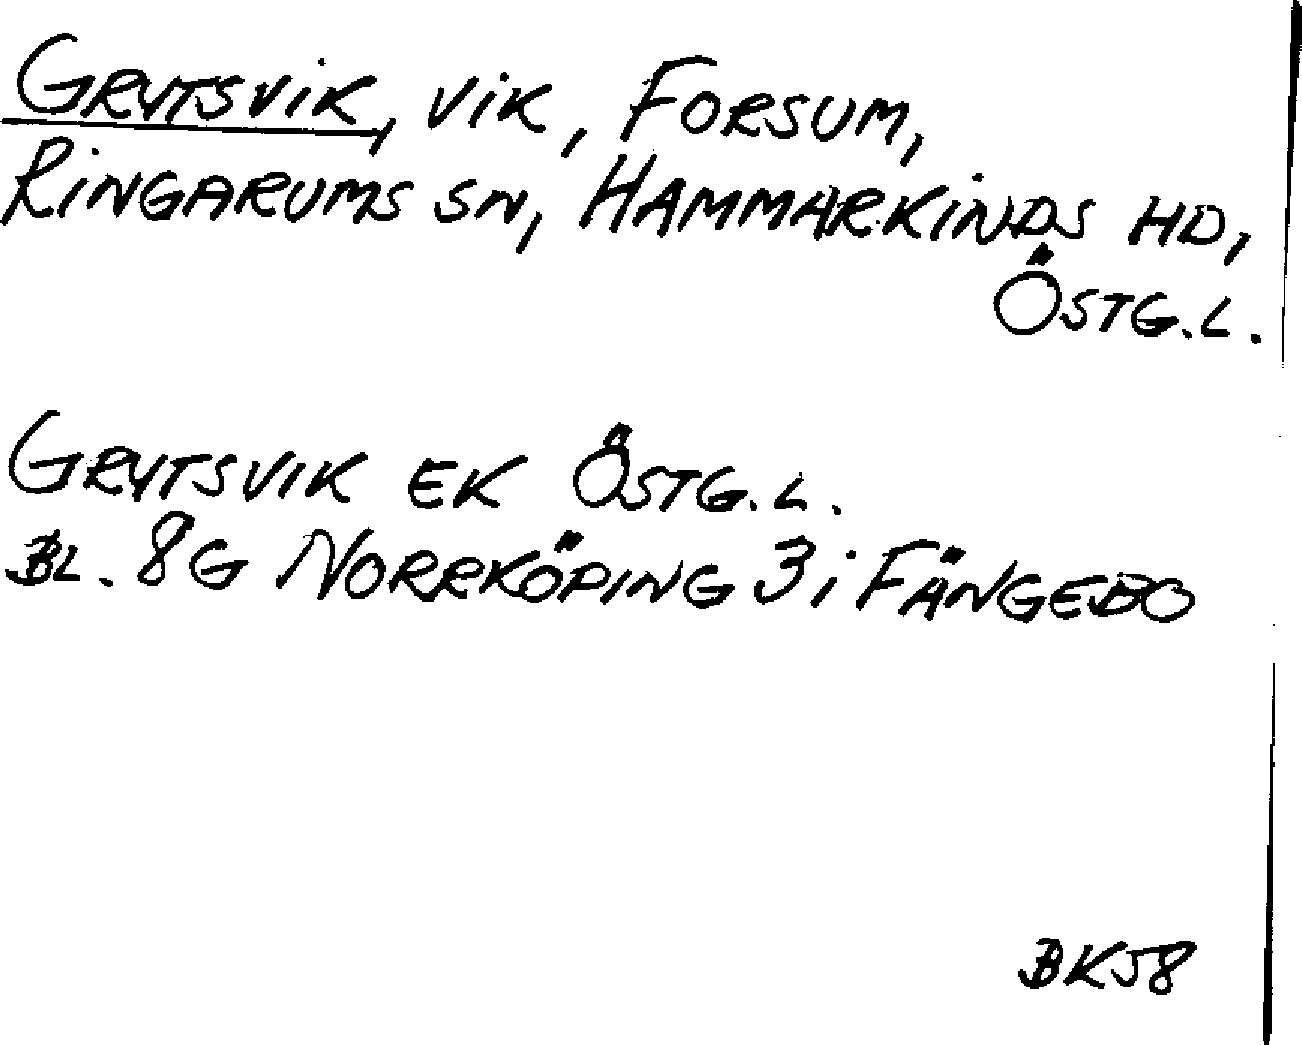 GRYTSVIK, VIK, FORSUM,
RINGARUMS SN, HAMMARKINDS HD,
ÖSTG.L.
GRYTSVIK EK ÖSTG.L.
BL. 8G NORRKÖPING 3i FÄNGEBO
BK58